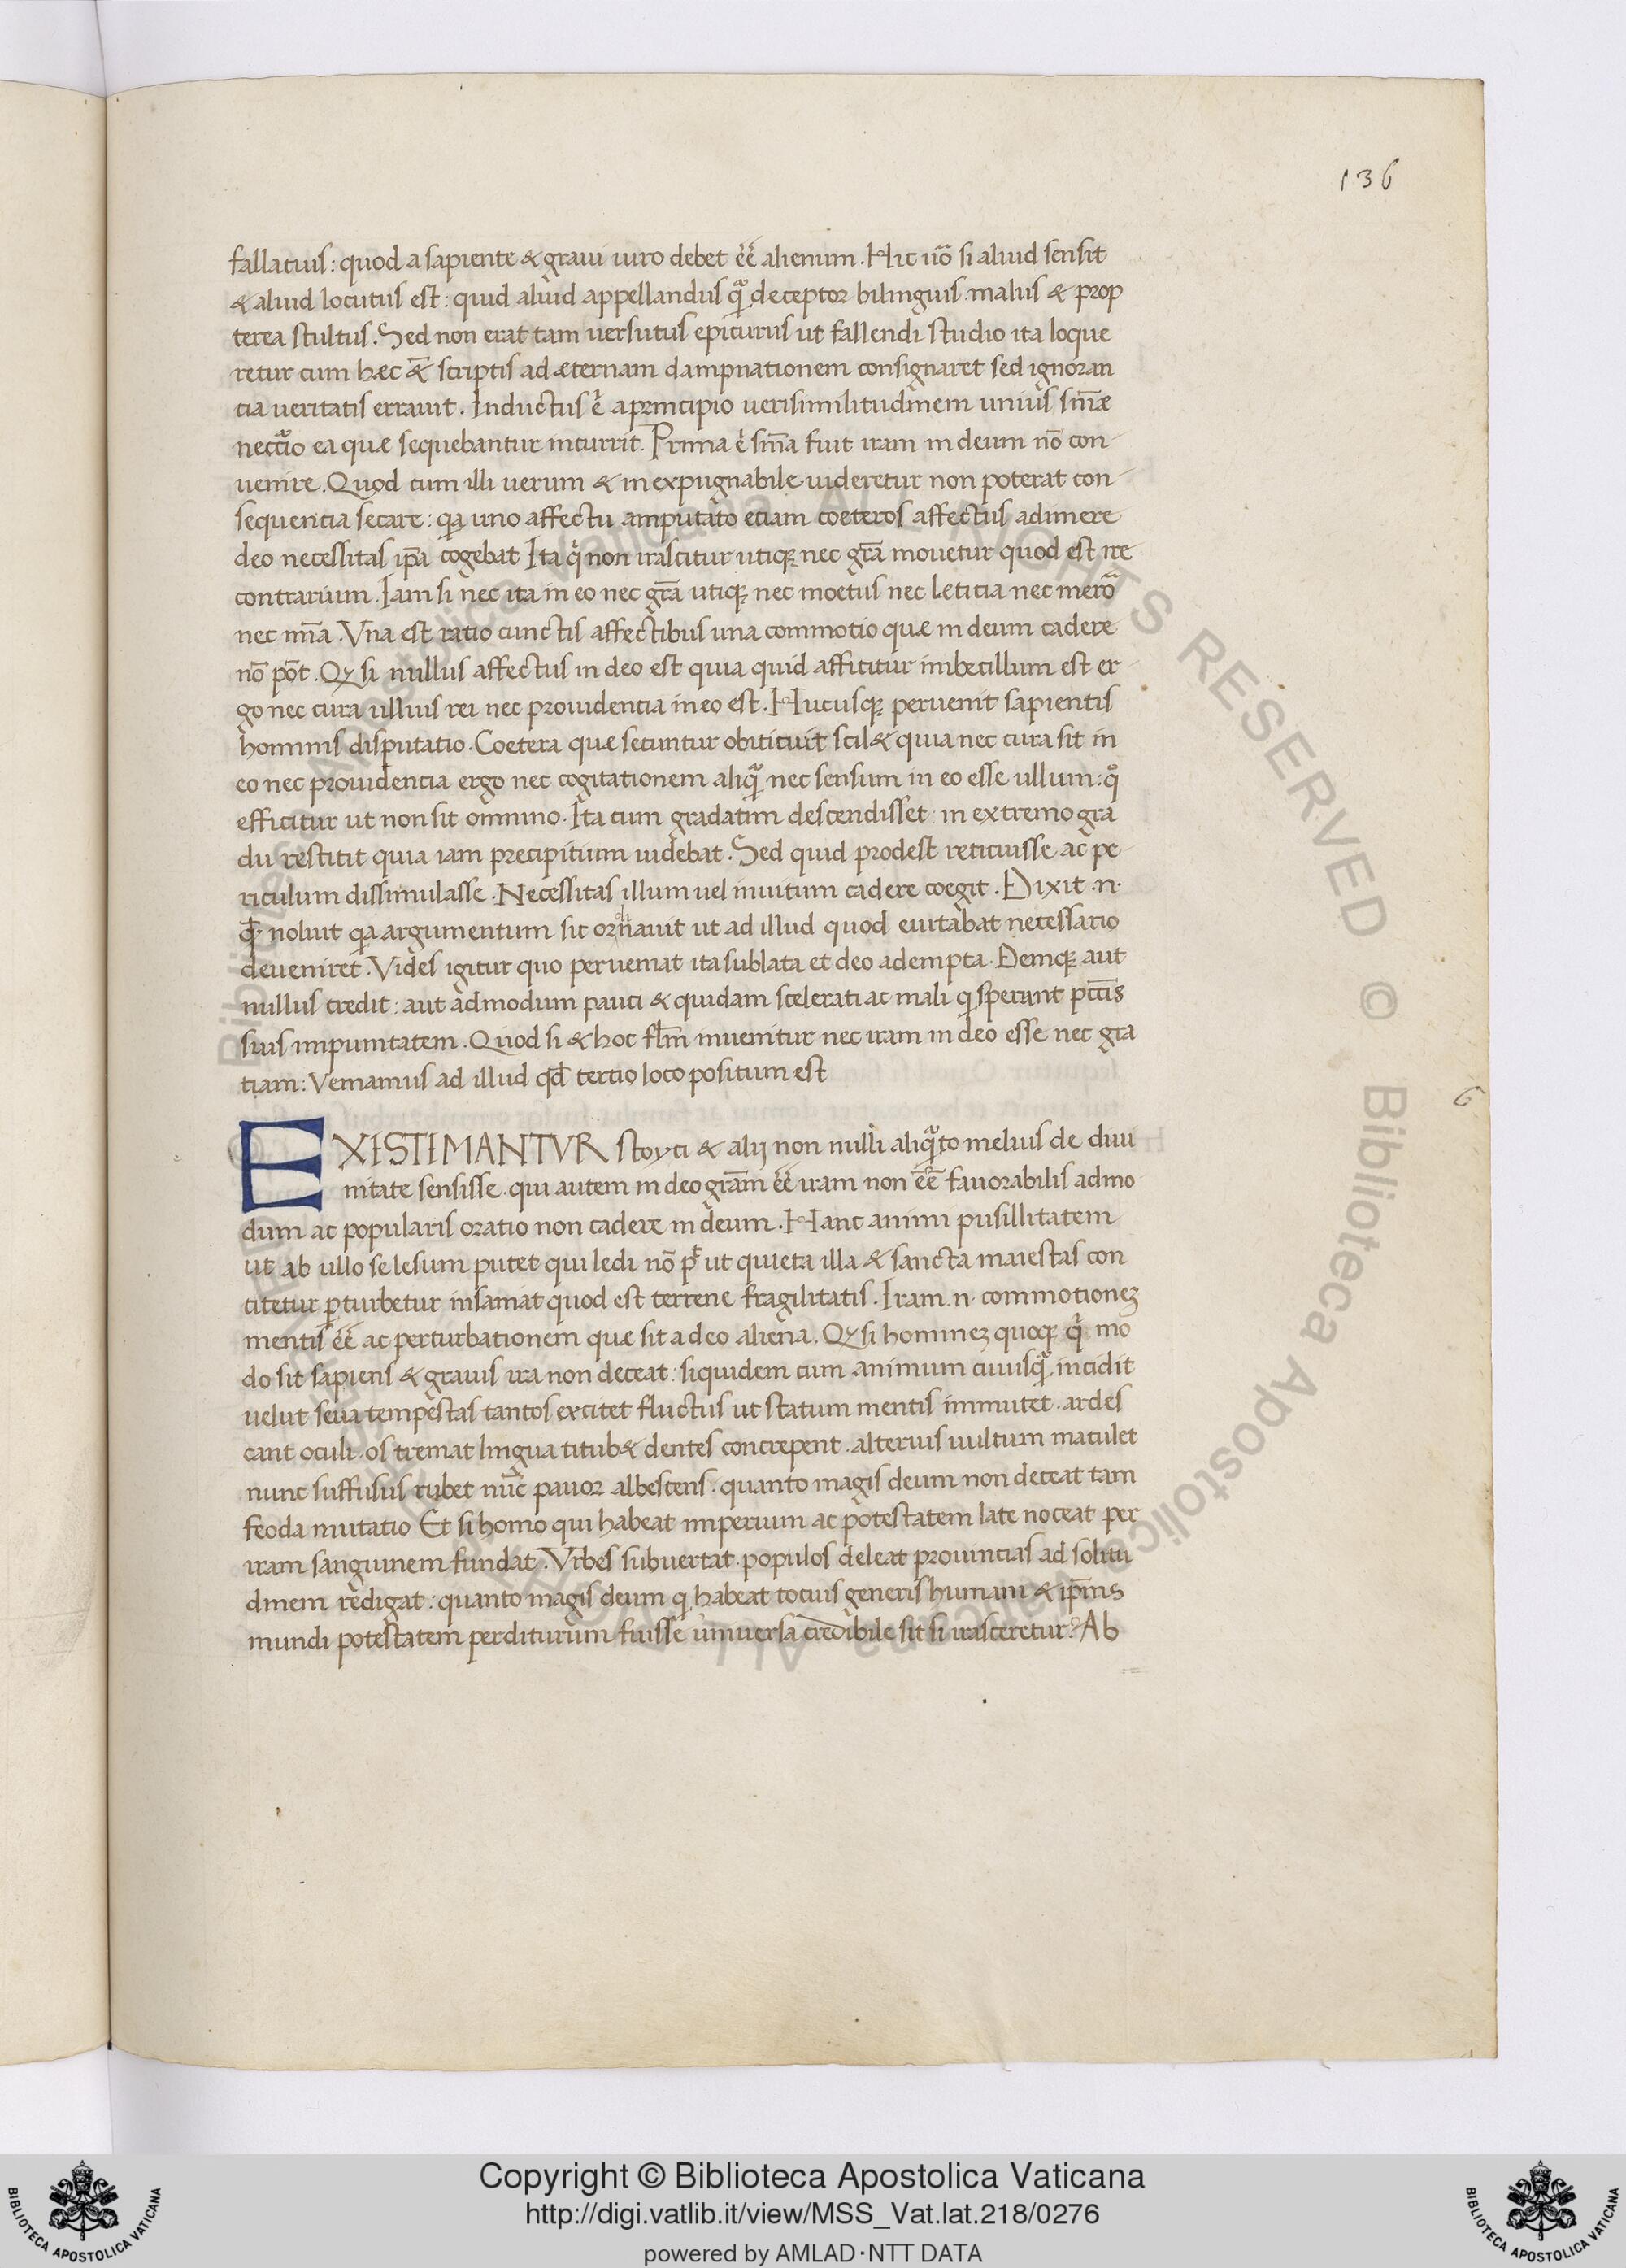 136
fallacius: quod a sapiente & graui uiro debet ēē alienum. Hic u̅o si aliud sensit
& aliud locutus est: quid aliud appellandus qͣ deceptor bilinguis malus & prop
terea stultus. Sed non erat tam uersutus epicurus ut fallendi studio ita loque
retur cum hæc &̅ scriptis ad æternam dampnationem consignaret sed ignoran
cia ueritatis errauit. Inductus ē a principio uerisimilitudinem unius sn̅iæ
necc̅io ea quæ sequebantur incurrit. Prima ē sn̅ia fuit iram in deum no̅ con
uenire. Quod cum illi uerum & inexpugnabile uideretur non poterat con
sequencia secare: qa uno affectu amputato eciam coeteros affectus adimere
deo necessitas ip̅a cogebat Ita qͥ non irascitur utiqꝫ nec gr̅a mouetur quod est ire
contrarium. Iam si nec ita in eo nec gr̅a utiqꝫ nec moetus nec leticia nec mero̅
nec mi̅a. Vna est ratio cunctis affectibus una commotio quæ in deum cadere
no̅ po̅t. Qꝫ si nullus affectus in deo est quia quid afficitur imbecillum est er
go nec cura ullius rei nec prouidencia in eo est. Hucusqꝫ peruenit sapientis
hominis disputatio. Coetera quæ secuntur obiticuit scil& quia nec cura sit in
eo nec prouidencia ergo nec cogitationem aliqͣ nec sensum in eo esse ullum: qͦ
efficitur ut non sit omnino. Ita cum gradatim descendisset: in extremo gra
du restitit quia iam precipitium uidebat. Sed quid prodest reticuisse ac pe
riculum dissimulasse. Necessitas illum uel inuitum cadere coegit. Dixit .n.
noluit qa argumentum sic ornauit ut ad illud quod euitabat necessario
deueniret. Vides igitur quo perueniat ita sublata et deo adempta. Deniqꝫ aut
nullus credit: aut admodum pauci & quidam scelerati ac mali q sperant pcc̅is
suis impunitatem. Quod si & hoc fl̅m inuenitur nec iram in deo esse nec gra
tiam: Veniamus ad illud qđ tercio loco positum est
EXISTIMANTVR stoyci & alij non nulli aliqͣto melius de diui
nitate sensisse. qui autem in deo gra̅m ēē iram non ēē fauorabilis admo
dum ac popularis oratio non cadere in deum. Hanc animi pusillitatem
ut ab ullo se lesum putet qui ledi no̅ pt̅ ut quieta illa & sancta maiestas con
citetur ꝑturbetur insaniat quod est terrene fragilitatis. Iram .n. commotioneꝫ
mentis ēē ac perturbationem quæ sit a deo aliena. Qꝫ si homineꝫ quoqꝫ qͥ mo
do sit sapiens & grauis ira non deceat: siquidem cum animum cuiusqͣ incidit
uelut seua tempestas tantos excitet fluctus ut statum mentis immutet. ardes
cant oculi. os tremat lingua titub& dentes concrepent. alterius uultum maculet
nunc suffusus rubet nu̅c pauor albescens. quanto magis deum non deceat tam
feoda mutatio Et si homo qui habeat imperium ac potestatem late noceat per
iram sanguinem fundat. Vrbes subuertat. populos deleat prouincias ad solitu
dinem redigat: quanto magis deum q habeat tocius generis humani & ip̅ius
mundi potestatem perditurum fuisse uniuersa credibile sit si irasceretur? Ab
Copyright © Biblioteca Apostolica Vaticana
http://digi.vatlib.it/view/MSS_Vat.lat.218/0276
powered by AMLAD·NTT DATA